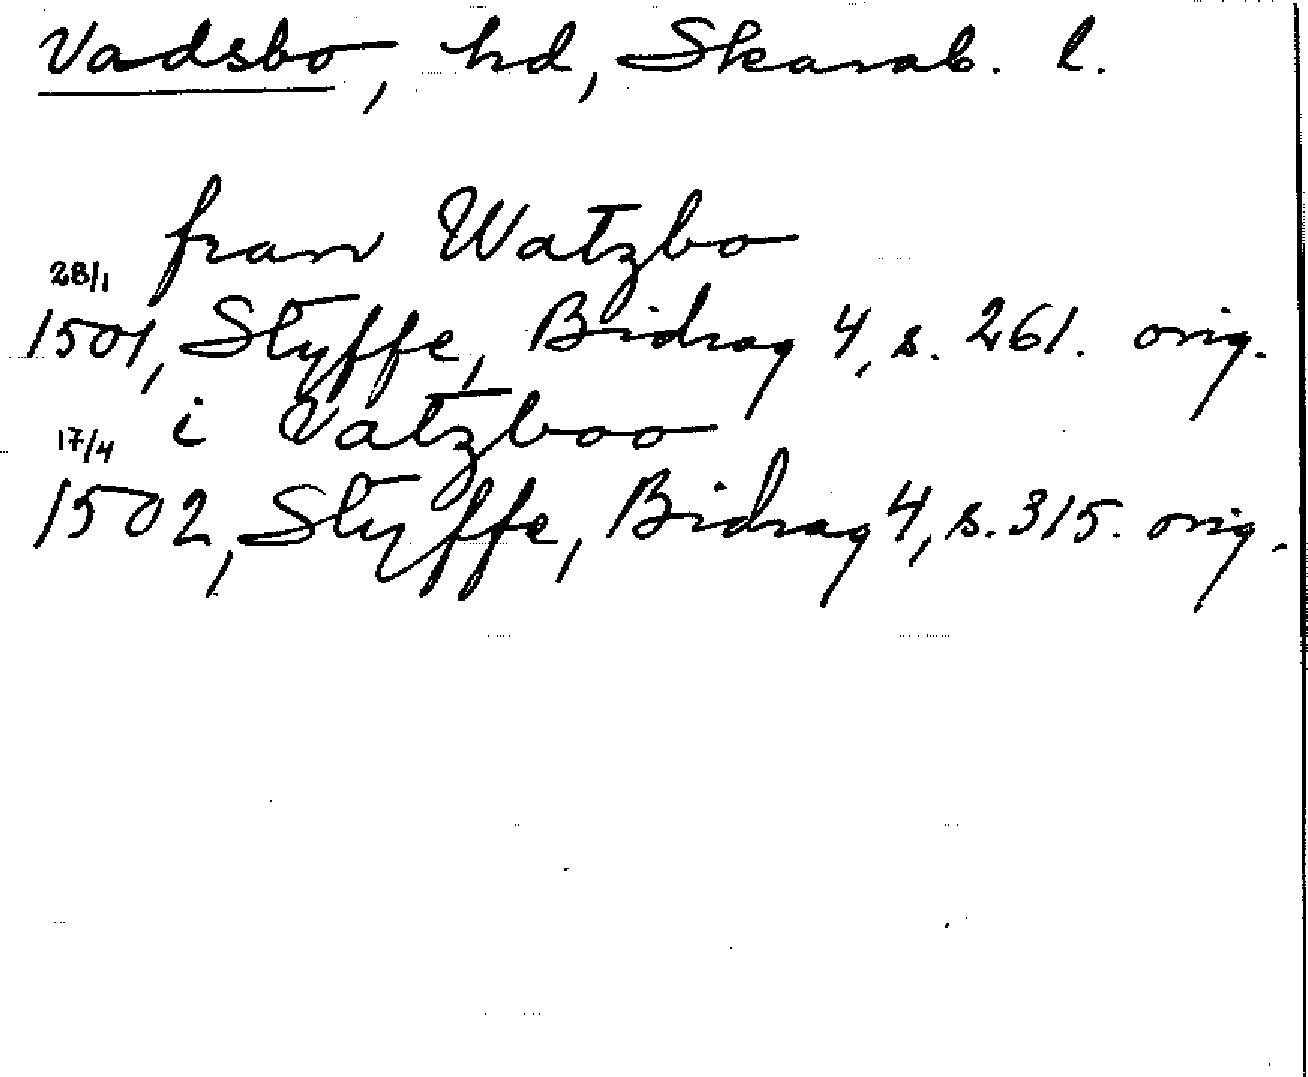 Vadsbo, hd, Skarab. l.
fran Watzbo
28/1
1501, Styffe, Bidrag 4, s. 261. orig.
i Vatzboo
17/4
1502, Styffe, Bidrag 4, s. 315. orig.